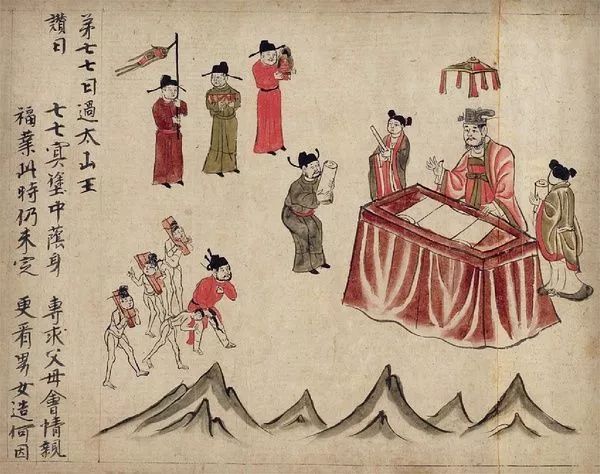 第七七日過太山王
讚曰
七七冥塗中蔭身　專求父母會情親
福業此時仍未定　更看男女造何因